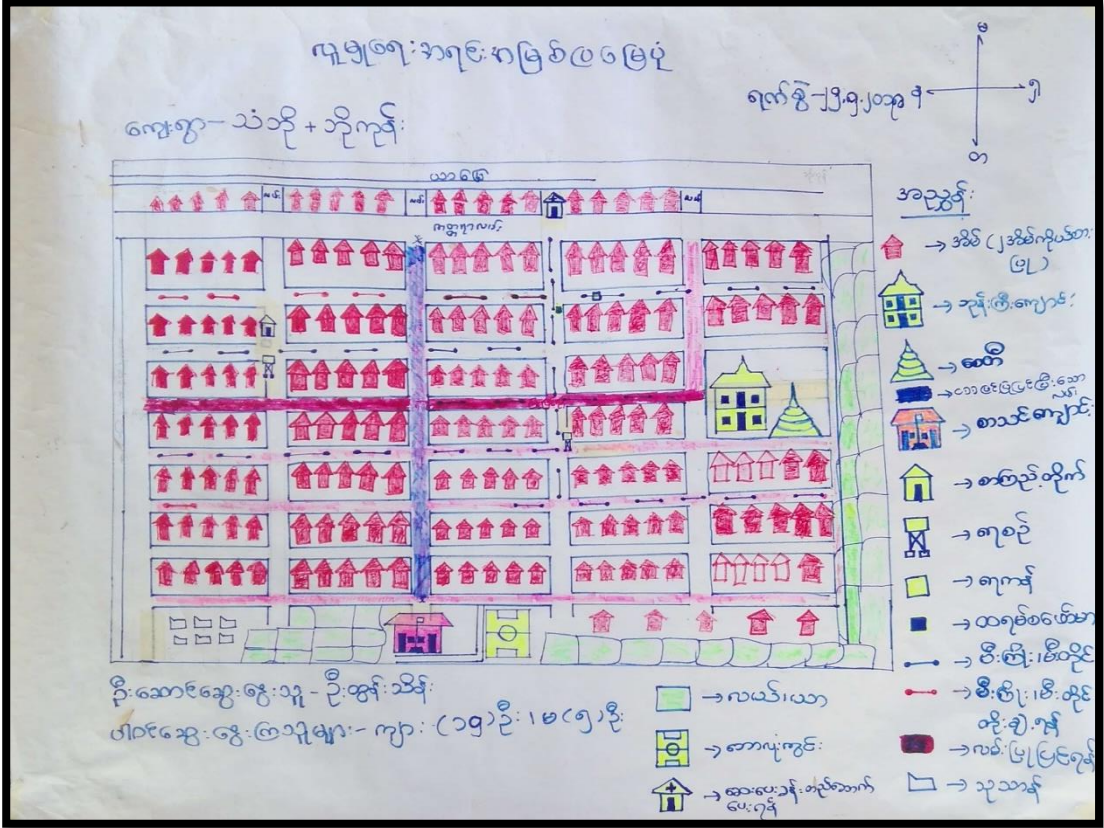 လူမှုရေးအရင်းအမြစ်ပြမြေပုံ
ကျေးရွာ - သံဘို + ဘိုကုန်း
ရက်စွဲ -
မ
န
ရှ
တ
ယာမြေ
လမ်း
လမ်း
လမ်း
ကတ္တရာလမ်း
အညွှန်း
→ အိမ် (၂အိမ်ကိုယ်စားပြု)
→ ဘုန်းကြီးကျောင်း
→ စေတီ
→ စာသင်ကျောင်း
→ စာကြည့်တိုက်
→ ရေစင်
→ ရေကန်
→ ထရန်စဖော်မာ
→ မီးကြိုး၊မီးတိုင်
→ မီးကြိုး၊မီးတိုင်
တိုးချဲ့ရန်
→ လမ်းပြုပြင်ရန်
→ သုသာန်
→ လယ်၊ယာ
→ ဘောလုံးကွင်း
→ ဆေးပေးခန်းတည်ဆောက်
ပေးရန်
ဦးဆောင်ဆွေးနွေးသူ - ဦးထွန်းသိန်း
ပါဝင်ဆွေးနွေးကြသူများ - ကျား (၁၄)ဦး၊ မ(၅)ဦး